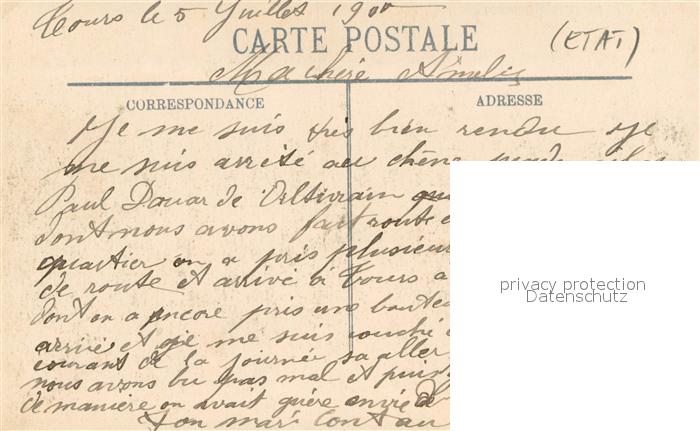 Tours le 5 Juillet 1900
CARTE POSTALE
(ETAT)
Ma chère Amélie
CORRESPONDANCE
ADRESSE
Je me suis très bien rendu Je
me suis arrêté au chêne
Paul Douar de
dont nous avons fait route
quartier on a pris plusieur
de route et arrivé à Tours a
dont on a encore pris une boutei
arrivé et je me suis couché
courant de la journée sa aller
nous avons bu pas mal et puis
de manière on avait guère envie de
ton mari
privacy protection
Datenschutz